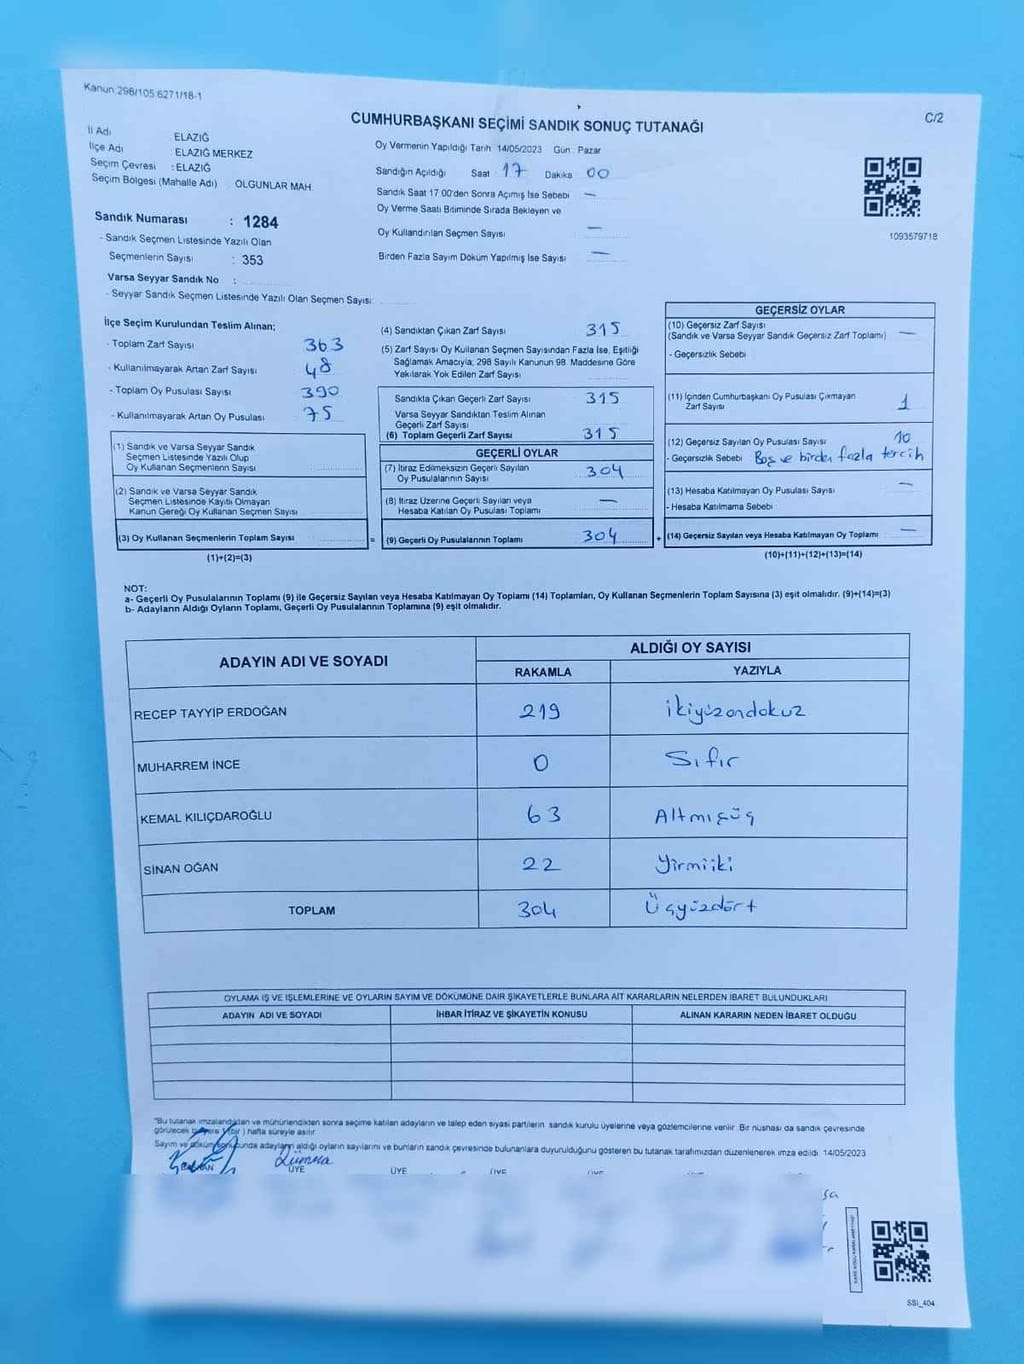 Kanun:298/105:6271/18-1
C/2
CUMHURBAŞKANI SEÇİMİ SANDIK SONUÇ TUTANAĞI
İl Adı ELAZIĞ
İlçe Adı : ELAZIĞ MERKEZ
Seçim Çevresi : ELAZIĞ
Seçim Bölgesi (Mahalle Adı) OLGUNLAR MAH
Sandık Numarası : 1284
- Sandık Seçmen Listesinde Yazılı Olan
Seçmenlerin Sayısı : 353
Varsa Seyyar Sandık No :
- Seyyar Sandık Seçmen Listesinde Yazılı Olan Seçmen Sayısı:
Oy Vermenin Yapıldığı Tarih 14/05/2023 Gün : Pazar
Sandığın Açıldığı Saat 17 Dakika 00
Sandık Saat 17.00'den Sonra Açımış İse Sebebi —
Oy Verme Saati Bitiminde Sırada Bekleyen ve
Oy Kullandırılan Seçmen Sayısı —
Birden Fazla Sayım Döküm Yapılmış İse Sayısı —
1093579718
İlçe Seçim Kurulundan Teslim Alınan;
- Toplam Zarf Sayısı 363
- Kullanılmayarak Artan Zarf Sayısı 48
- Toplam Oy Pusulası Sayısı 390
- Kullanılmayarak Artan Oy Pusulası 75
(1) Sandık ve Varsa Seyyar Sandık
Seçmen Listesinde Yazılı Olup
Oy Kullanan Seçmenlerin Sayısı
(2) Sandık ve Varsa Seyyar Sandık
Seçmen Listesinde Kayıtlı Olmayan
Kanun Gereği Oy Kullanan Seçmen Sayısı
(3) Oy Kullanan Seçmenlerin Toplam Sayısı
(1)+(2)=(3)
=
(4) Sandıktan Çıkan Zarf Sayısı 315
(5) Zarf Sayısı Oy Kullanan Seçmen Sayısından Fazla İse, Eşitliği
Sağlamak Amacıyla; 298 Sayılı Kanunun 98. Maddesine Göre
Yakılarak Yok Edilen Zarf Sayısı
Sandıkta Çıkan Geçerli Zarf Sayısı 315
Varsa Seyyar Sandıktan Teslim Alınan
Geçerli Zarf Sayısı
(6) Toplam Geçerli Zarf Sayısı 315
GEÇERLİ OYLAR
(7) İtiraz Edilmeksizin Geçerli Sayılan
Oy Pusulalarının Sayısı 304
(8) İtiraz Üzerine Geçerli Sayılan veya
Hesaba Katılan Oy Pusulası Toplamı —
(9) Geçerli Oy Pusulalarının Toplamı 304
+
GEÇERSİZ OYLAR
(10) Geçersiz Zarf Sayısı
(Sandık ve Varsa Seyyar Sandık Geçersiz Zarf Toplamı) —
- Geçersizlik Sebebi
(11) İçinden Cumhurbaşkanı Oy Pusulası Çıkmayan
Zarf Sayısı 1
(12) Geçersiz Sayılan Oy Pusulası Sayısı 10
- Geçersizlik Sebebi Boş ve birden fazla tercih
(13) Hesaba Katılmayan Oy Pusulası Sayısı —
- Hesaba Katılmama Sebebi
(14) Geçersiz Sayılan veya Hesaba Katılmayan Oy Toplamı —
(10)+(11)+(12)+(13)=(14)
NOT:
a- Geçerli Oy Pusulalarının Toplamı (9) ile Geçersiz Sayılan veya Hesaba Katılmayan Oy Toplamı (14) Toplamları, Oy Kullanan Seçmenlerin Toplam Sayısına (3) eşit olmalıdır. (9)+(14)=(3)
b- Adayların Aldığı Oyların Toplamı, Geçerli Oy Pusulalarının Toplamına (9) eşit olmalıdır.
ADAYIN ADI VE SOYADI ALDIĞI OY SAYISI
RAKAMLA YAZIYLA
RECEP TAYYİP ERDOĞAN 219 ikiyüzondokuz
MUHARREM İNCE 0 Sıfır
KEMAL KILIÇDAROĞLU 63 Altmışüç
SİNAN OĞAN 22 Yirmiiki
TOPLAM 304 Üçyüzdört
OYLAMA İŞ VE İŞLEMLERİNE VE OYLARIN SAYIM VE DÖKÜMÜNE DAİR ŞİKAYETLERLE BUNLARA AİT KARARLARIN NELERDEN İBARET BULUNDUKLARI
ADAYIN ADI VE SOYADI İHBAR İTİRAZ VE ŞİKAYETİN KONUSU ALINAN KARARIN NEDEN İBARET OLDUĞU
"Bu tutanak imzalandıktan ve mühürlendikten sonra seçime katılan adayların ve talep eden siyasi partilerin sandık kurulu üyelerine veya gözlemcilerine verilir. Bir nüshası da sandık çevresinde
görülecek bir yere 1 (bir ) hafta süreyle asılır
Sayım ve döküm sonucunda adayların aldığı oyların sayılarını ve bunların sandık çevresinde bulunanlara duyurulduğunu gösteren bu tutanak tarafımızdan düzenlenerek imza edildi. 14/05/2023
BAŞKAN ÜYE ÜYE ÜYE ÜYE
SSİ_404